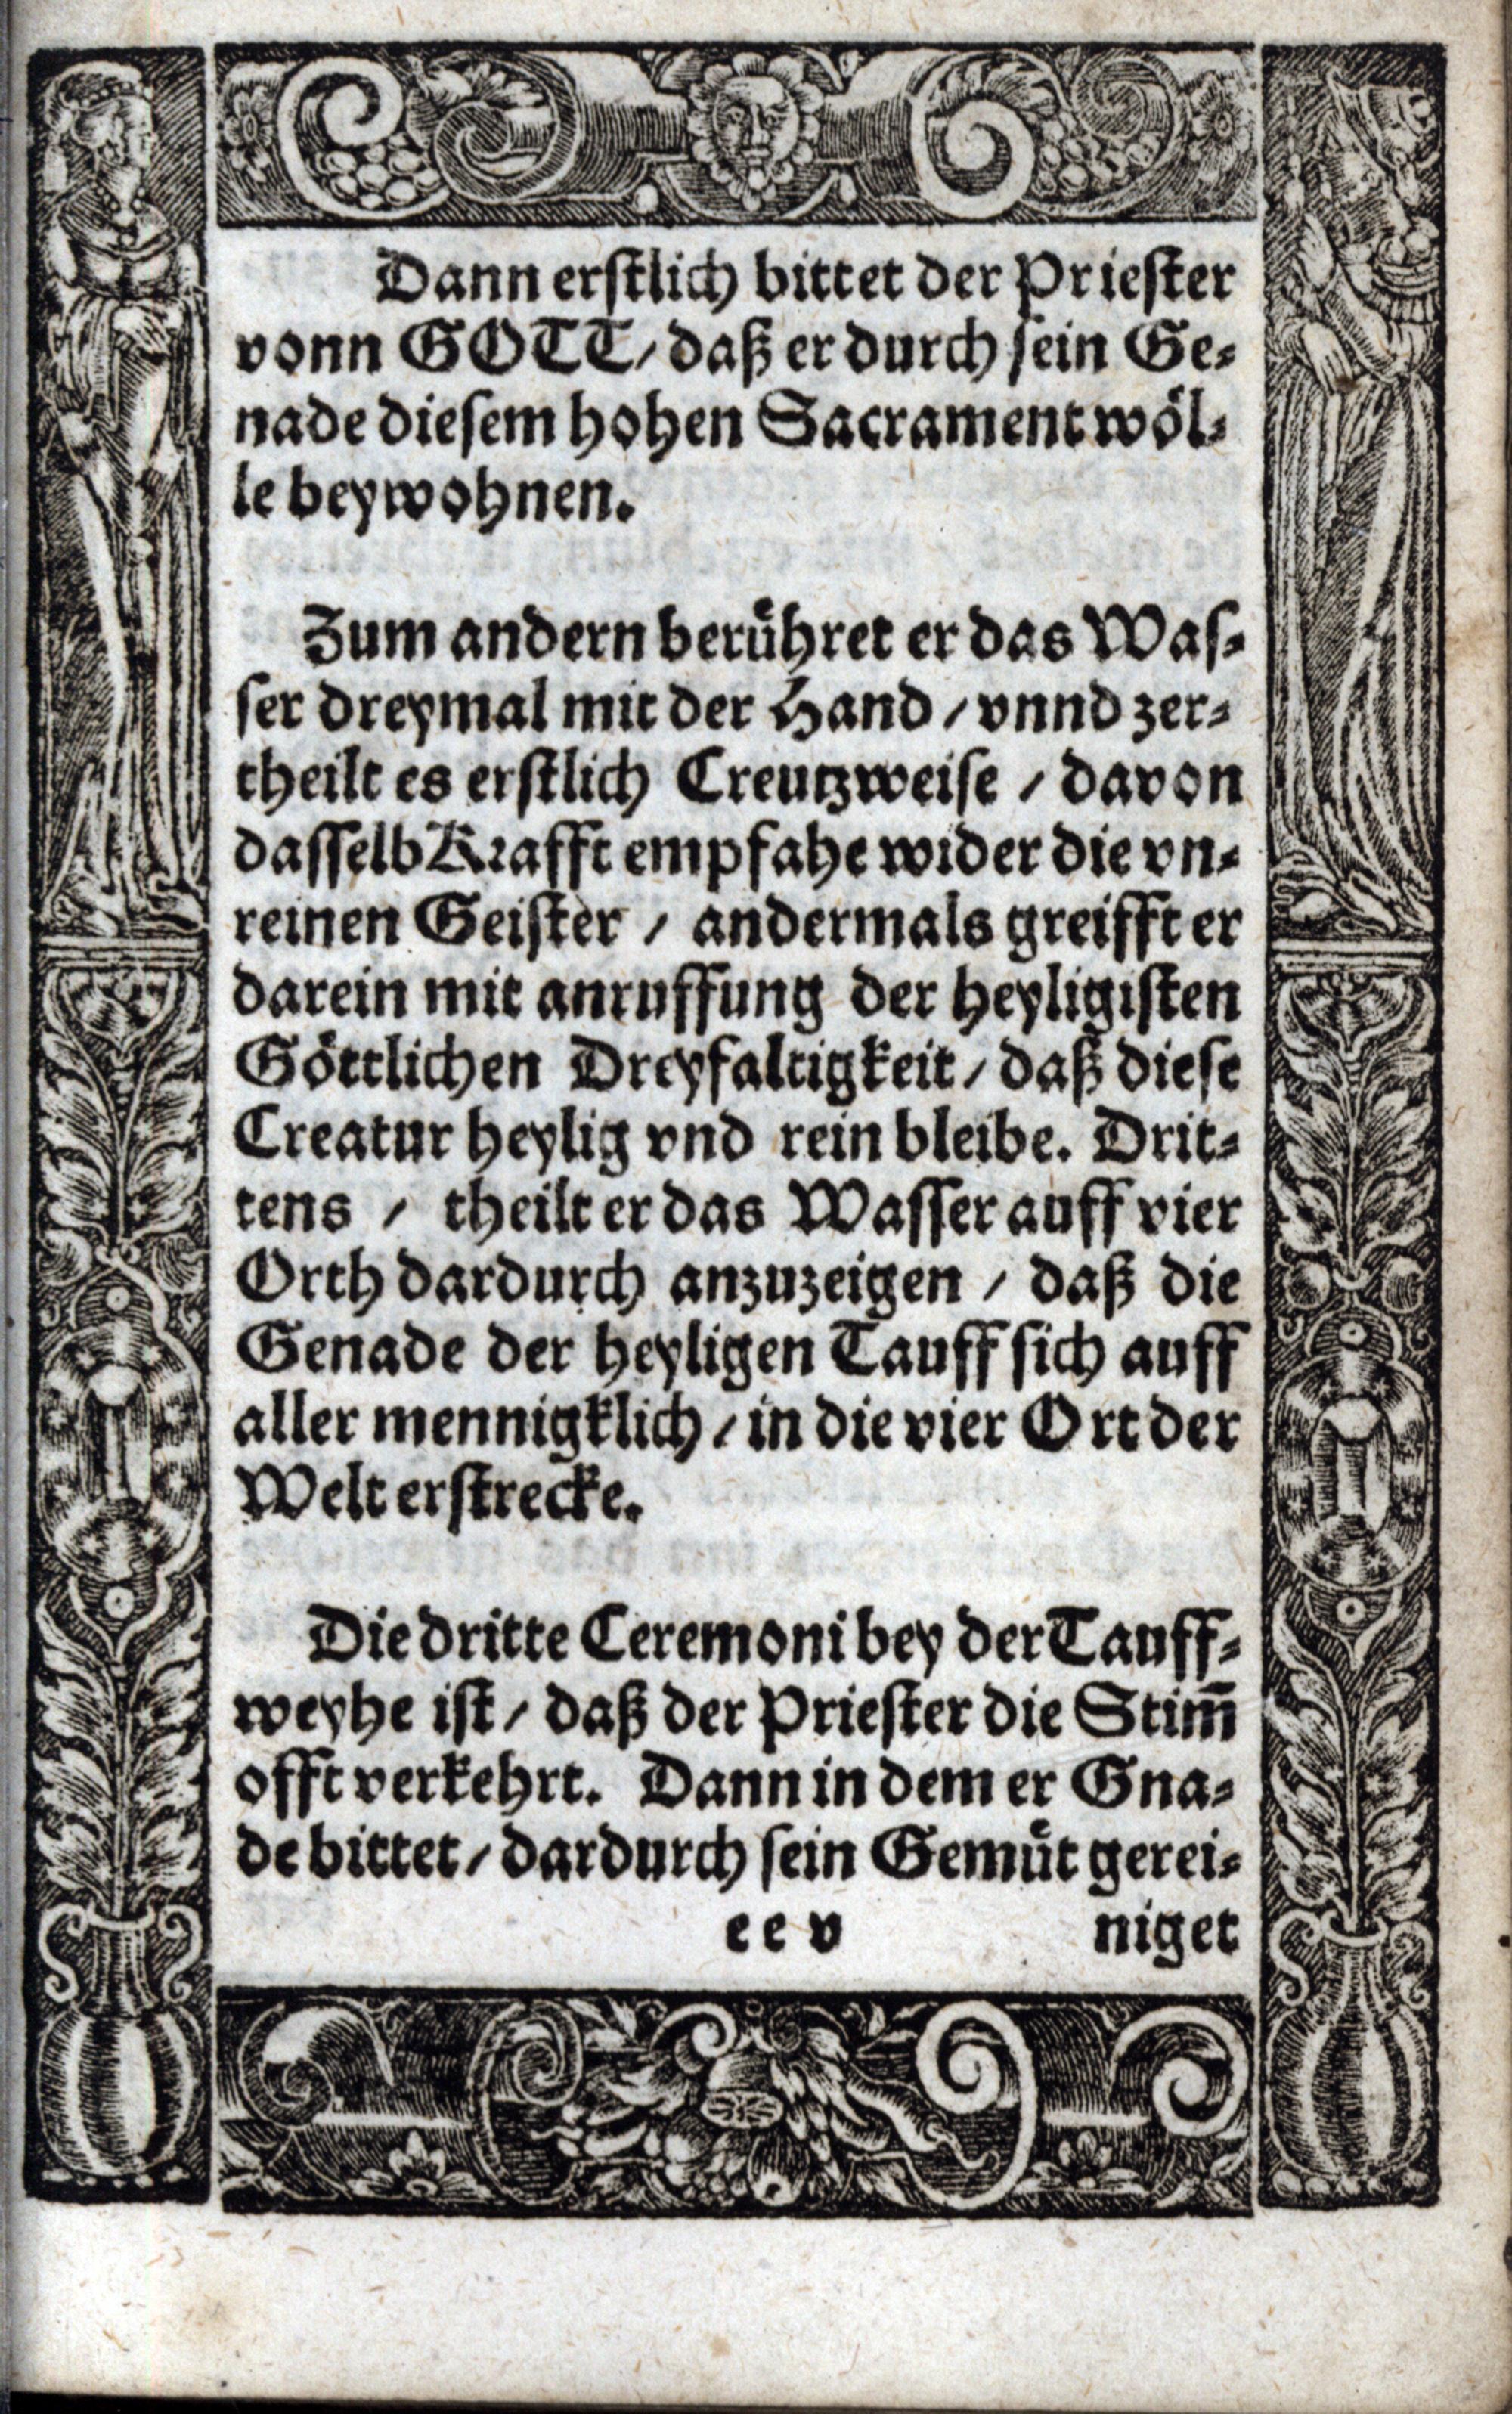 Dann erstlich bittet der Priester
vonn GOTT / daß er durch sein Ge-
nade diesem hohen Sacrament wöl-
le beywohnen.
Zum andern berühret er das Was-
ser dreymal mit der Hand / vnnd zer-
theilt es erstlich Creutzweise / davon
dasselb Krafft empfahe wider die vn-
reinen Geister / andermals greifft er
darein mit anruffung der heyligisten
Göttlichen Dreyfaltigkeit / daß diese
Creatur heylig vnd rein bleibe. Drit-
tens / theilt er das Wasser auff vier
Orth dardurch anzuzeigen / daß die
Genade der heyligen Tauff sich auff
aller mennigklich / in die vier Ort der
Welt erstrecke.
Die dritte Ceremoni bey der Tauff-
weyhe ist / daß der Priester die Stim̄
offt verkehrt. Dann in dem er Gna-
de bittet / dardurch sein Gemüt gerei-
ee v niget